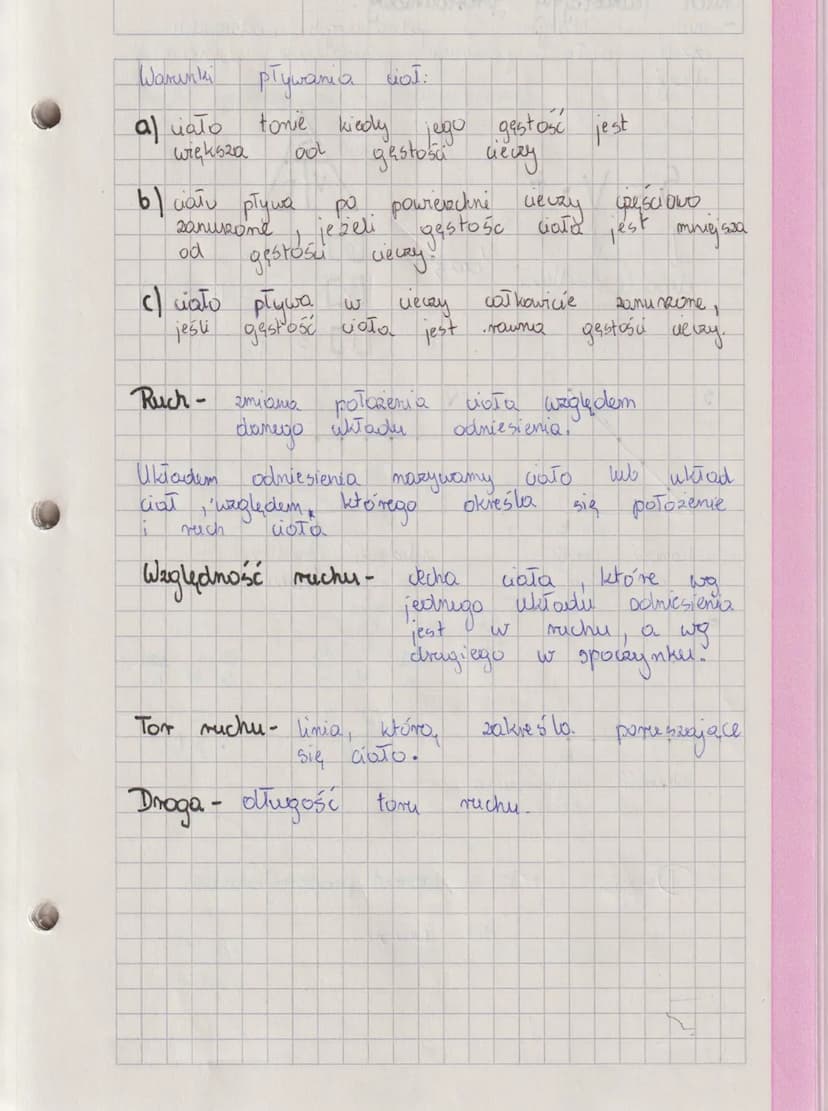 Warunki pływania ciał:
a) ciało tonie kiedy jego gęstość jest
większa od gęstości cieczy
b) ciało pływa po powierzchni cieczy częściowo
zanurzone, jeżeli gęstość ciała jest mniejsza
od gęstości cieczy.
c) ciało pływa w cieczy całkowicie zanurzone,
jeśli gęstość ciała jest równa gęstości cieczy.
Ruch - zmiana położenia ciała względem
danego układu odniesienia.
Układem odniesienia nazywamy ciało lub układ
ciał, względem, którego określa się położenie
i ruch ciała
Względność ruchu - cecha ciała, które wg
jednego układu odniesienia
jest w ruchu, a wg
drugiego w spoczynku.
Tor ruchu - linia, którą zakreśla poruszające
się ciało.
Droga - długość toru ruchu.